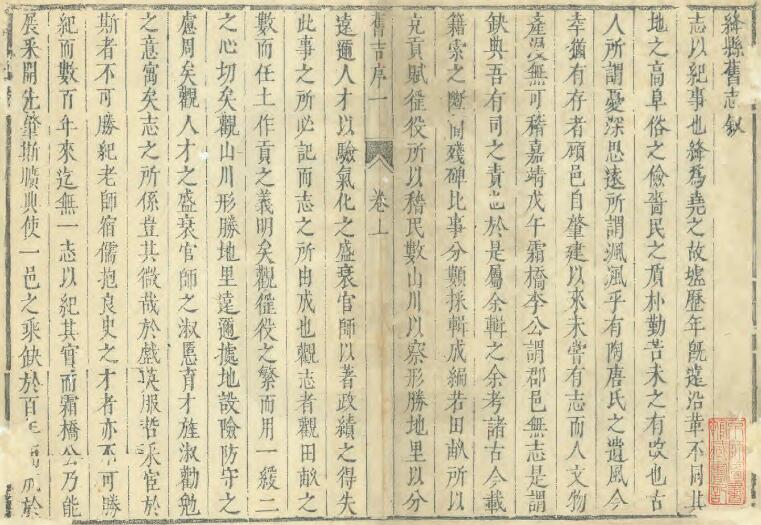 絳縣舊志敘
志以紀事也絳為堯之故墟歷年既遠沿革不同其
地之高阜俗之儉嗇民之質朴勤苦未之有改也古
人所謂憂深思遠所謂渢渢乎有陶唐氏之遺風今
幸猶有存者顧邑自肇建以來未嘗有志而人文物
產漫無可稽嘉靖戊午霜橋李公謂郡邑無志是謂
缺典吾有司之責也於是屬余輯之余考諸古今載
籍索之斷碣殘碑比事分類採輯成編若田畝所以
充貢賦徭役所以稽民數山川以察形勝地里以分
舊志序一 卷上
遠邇人才以驗氣化之盛衰官師以著政績之得失
此事之所必記而志之所由成也觀志者觀田畝之
數而任土作貢之義明矣觀徭役之繁而用一緩二
之心切矣觀山川形勝地里遠邇據地設險防守之
慮周矣觀人才之盛衰官師之淑慝育才旌淑勸勉
之意寓矣志之所係豈其微哉於戲英服哲采宦於
斯者不可勝紀老師宿儒抱良史之才者亦不可勝
紀而數百年來迄無一志以紀其實而霜橋公乃能
展釆開先肇斯曠典使一邑之乘缺於百年而成於